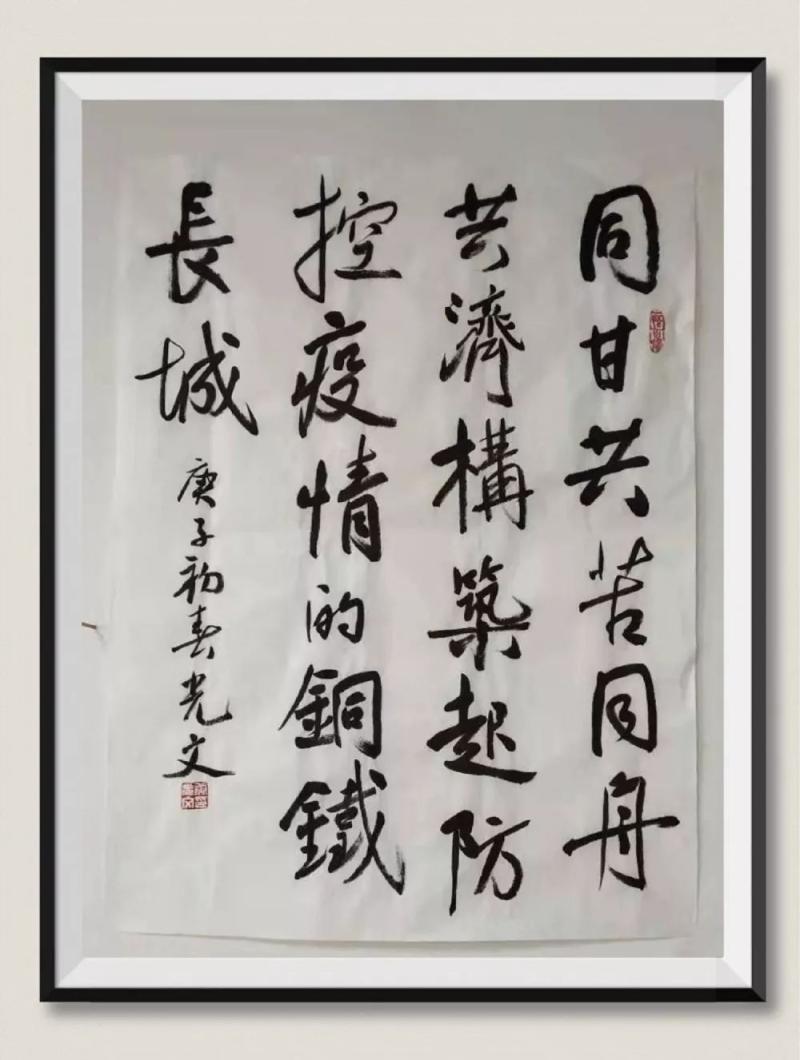 同甘共苦同舟
共濟構築起防
控疫情的銅鐵
長城
庚子初春光文